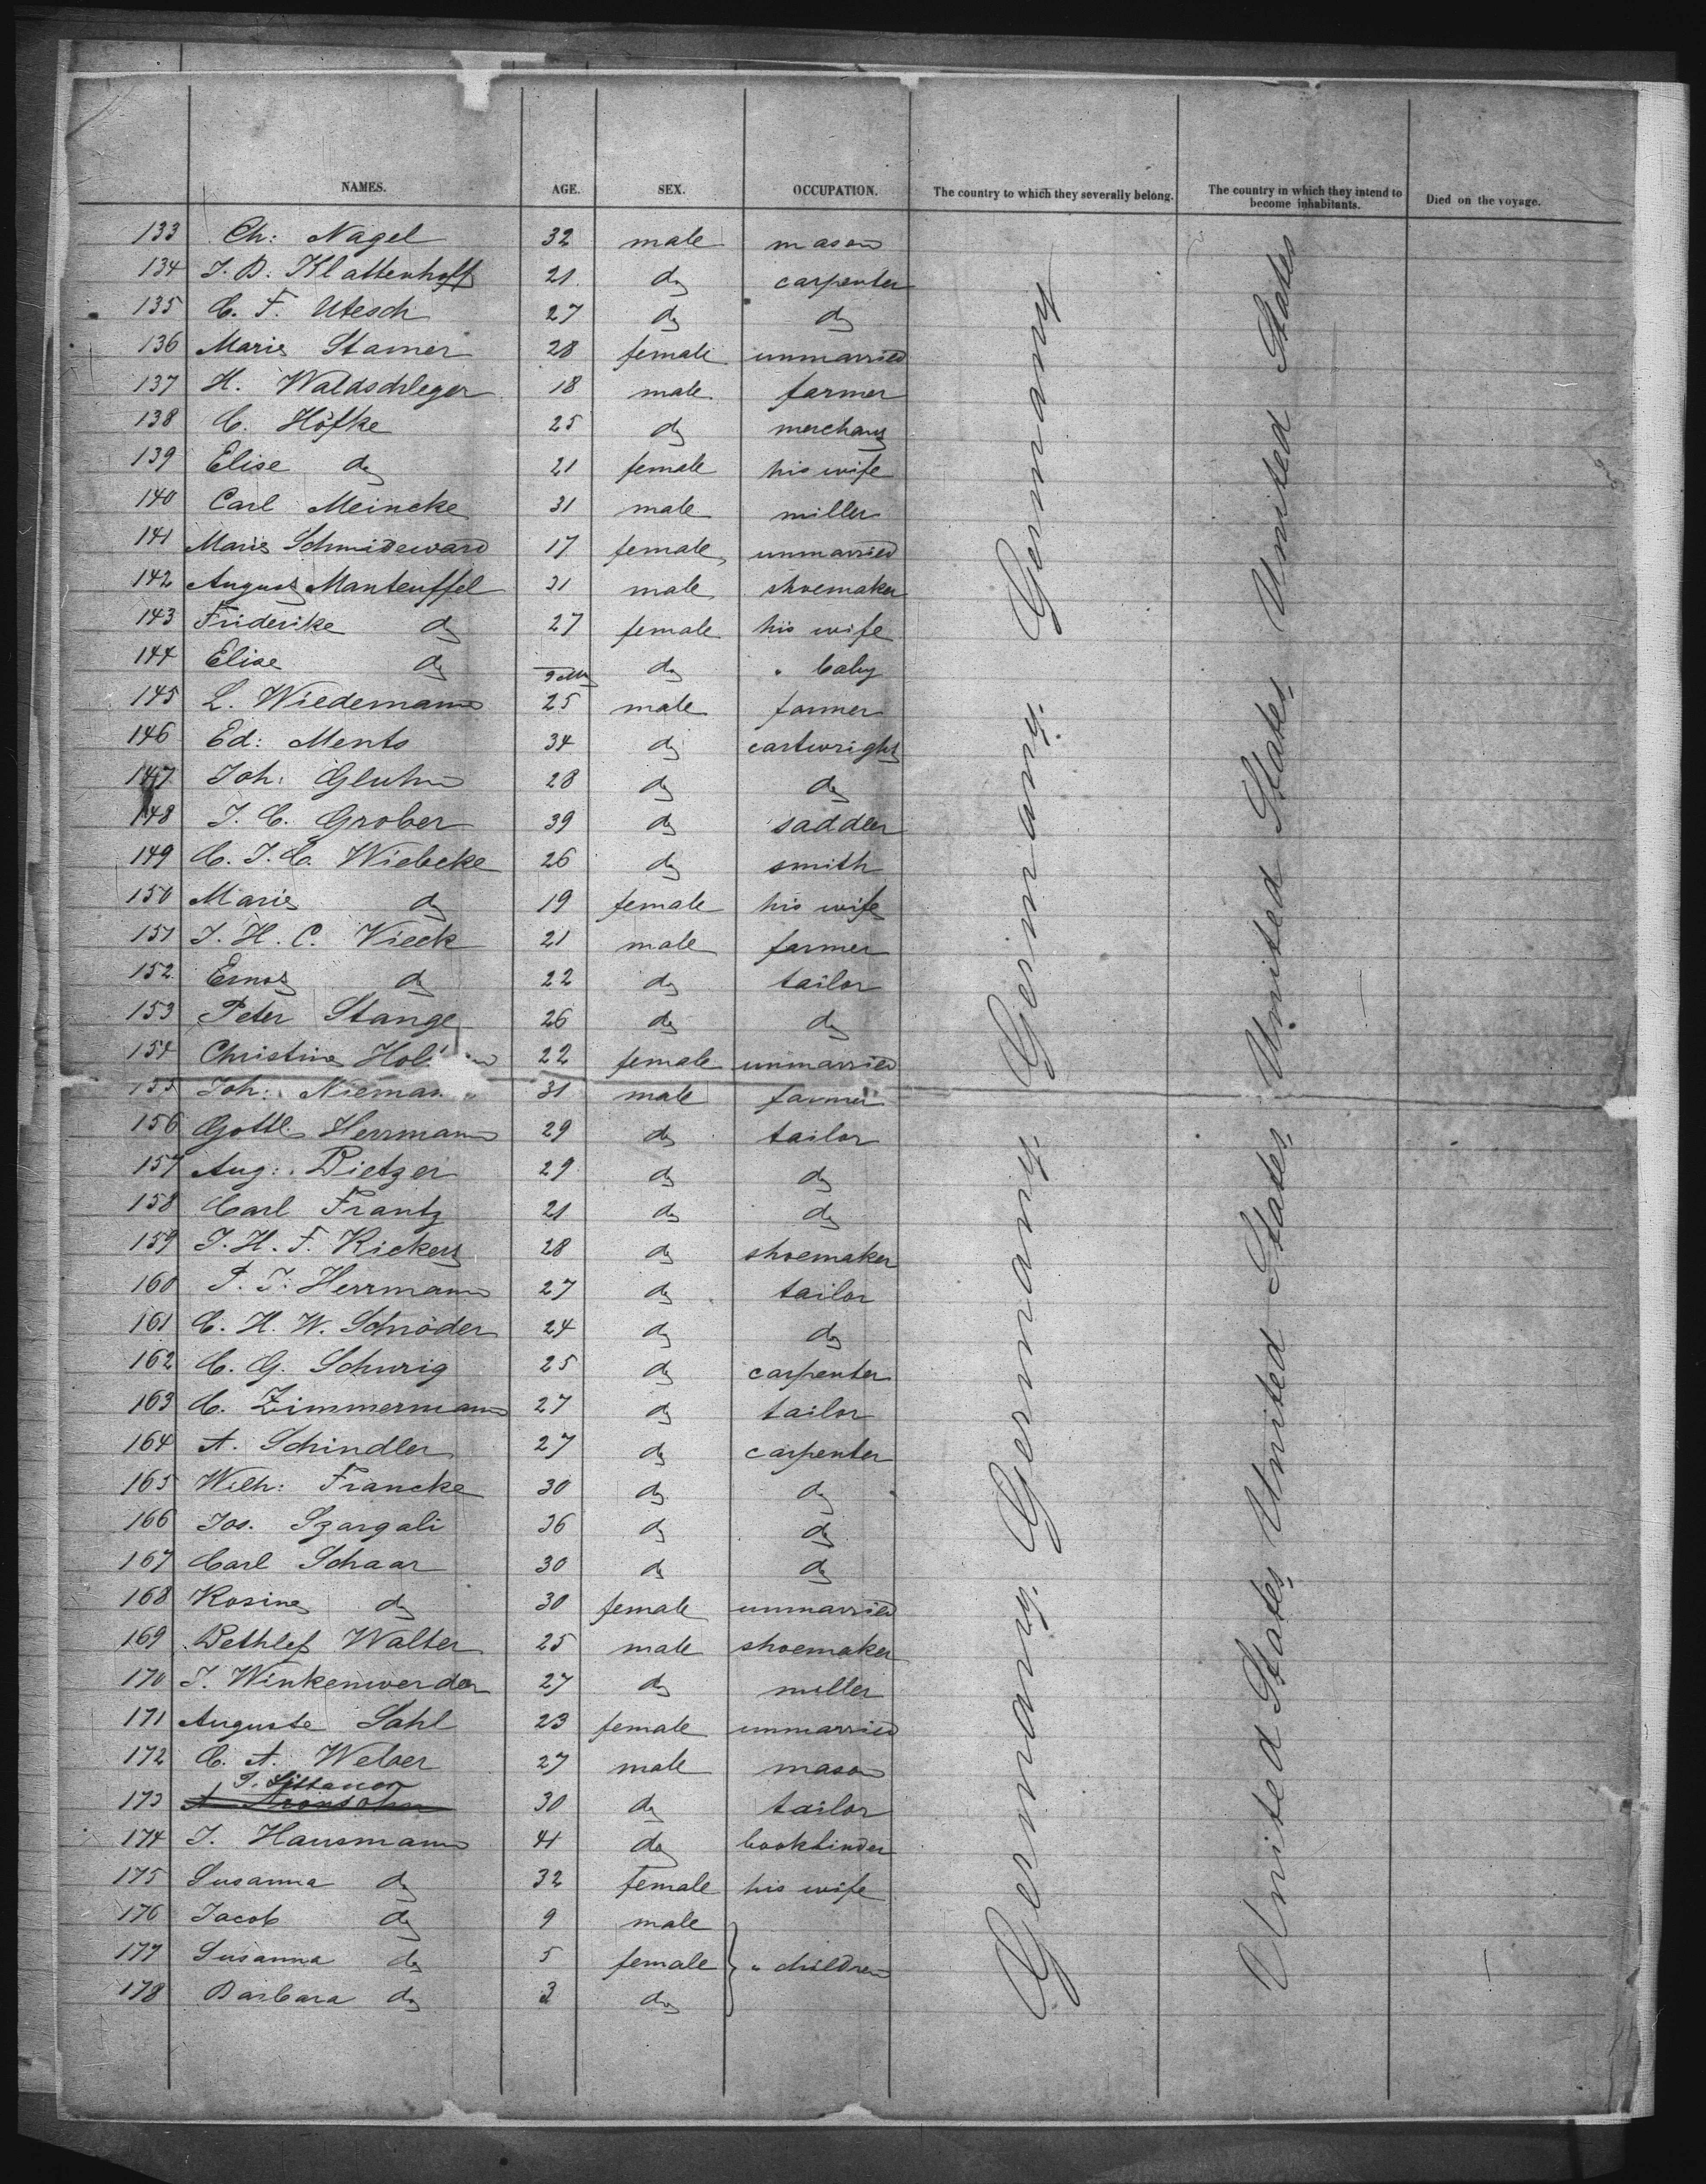 NAMES. AGE. SEX. OCCUPATION. The country to which they severally belong. The country in which they intend to become inhabitants. Died on the voyage.
133 Ch: Nagel 32 male mason
134 J. D. Klattenhoff 21. do carpenter
135 C. F. Utesch 27 do do
136 Marie Stamer 28 female unmarried
137 H. Waldschleger 18 male farmer
138 C. Höfke 25 do merchant
139 Elise do 21 female his wife
140 Carl Meincke 31 male miller
141 Marie Schmideward 17 female unmarried
142 August Manteuffel 31 male shoemaker
143 Friderike do 27 female his wife
144 Elise do 9 Mo do " baby
145 L. Wiedemann 25 male farmer
146 Ed: Ments 34 do cartwright
147 Joh: Gluhn 28 do do
148 J. C. Grober 39 do saddler
149 C. J. C. Wiebcke 26 do smith
150 Marie do 19 female his wife
151 J. H. C. Vieck 21 male farmer
152 Ernst do 22 do tailor
153 Peter Stange 26 do do
154 Christine 22 female unmarried
155 Joh: 31 male farmer
156 Gottl. Herrmann 29 do tailor
157 Aug: Dietzer 29 do do
158 Carl Frantz 21 do do
159 J. H. F. Rickers 28 do shoemaker
160 P. J. Herrmann 27 do tailor
161 C. H. W. Schröder 24 do do
162 C. G. Schurig 25 do carpenter
163 C. Zimmermann 27 do tailor
164 A. Schindler 27 do carpenter
165 Wilh: Francke 30 do do
166 Jos. Szargali 36 do do
167 Carl Schaar 30 do do
168 Rosine do 30 female unmarried
169 Dethlef Walter 25 male shoemaker
170 J. Winkenwerder 27 do miller
171 Auguste Sahl 23 female unmarried
172 C. A. Weber 27 male mason
173 A Aronsohn 30 do tailor
174 J. Hausmann 41 do bookbinder
175 Susanna do 32 female his wife
176 Jacob do 9 male
177 Susanna do 5 female " children
178 Barbara do 3 do
Germany. Germany. Germany. Germany
United States, United States, United States, United States